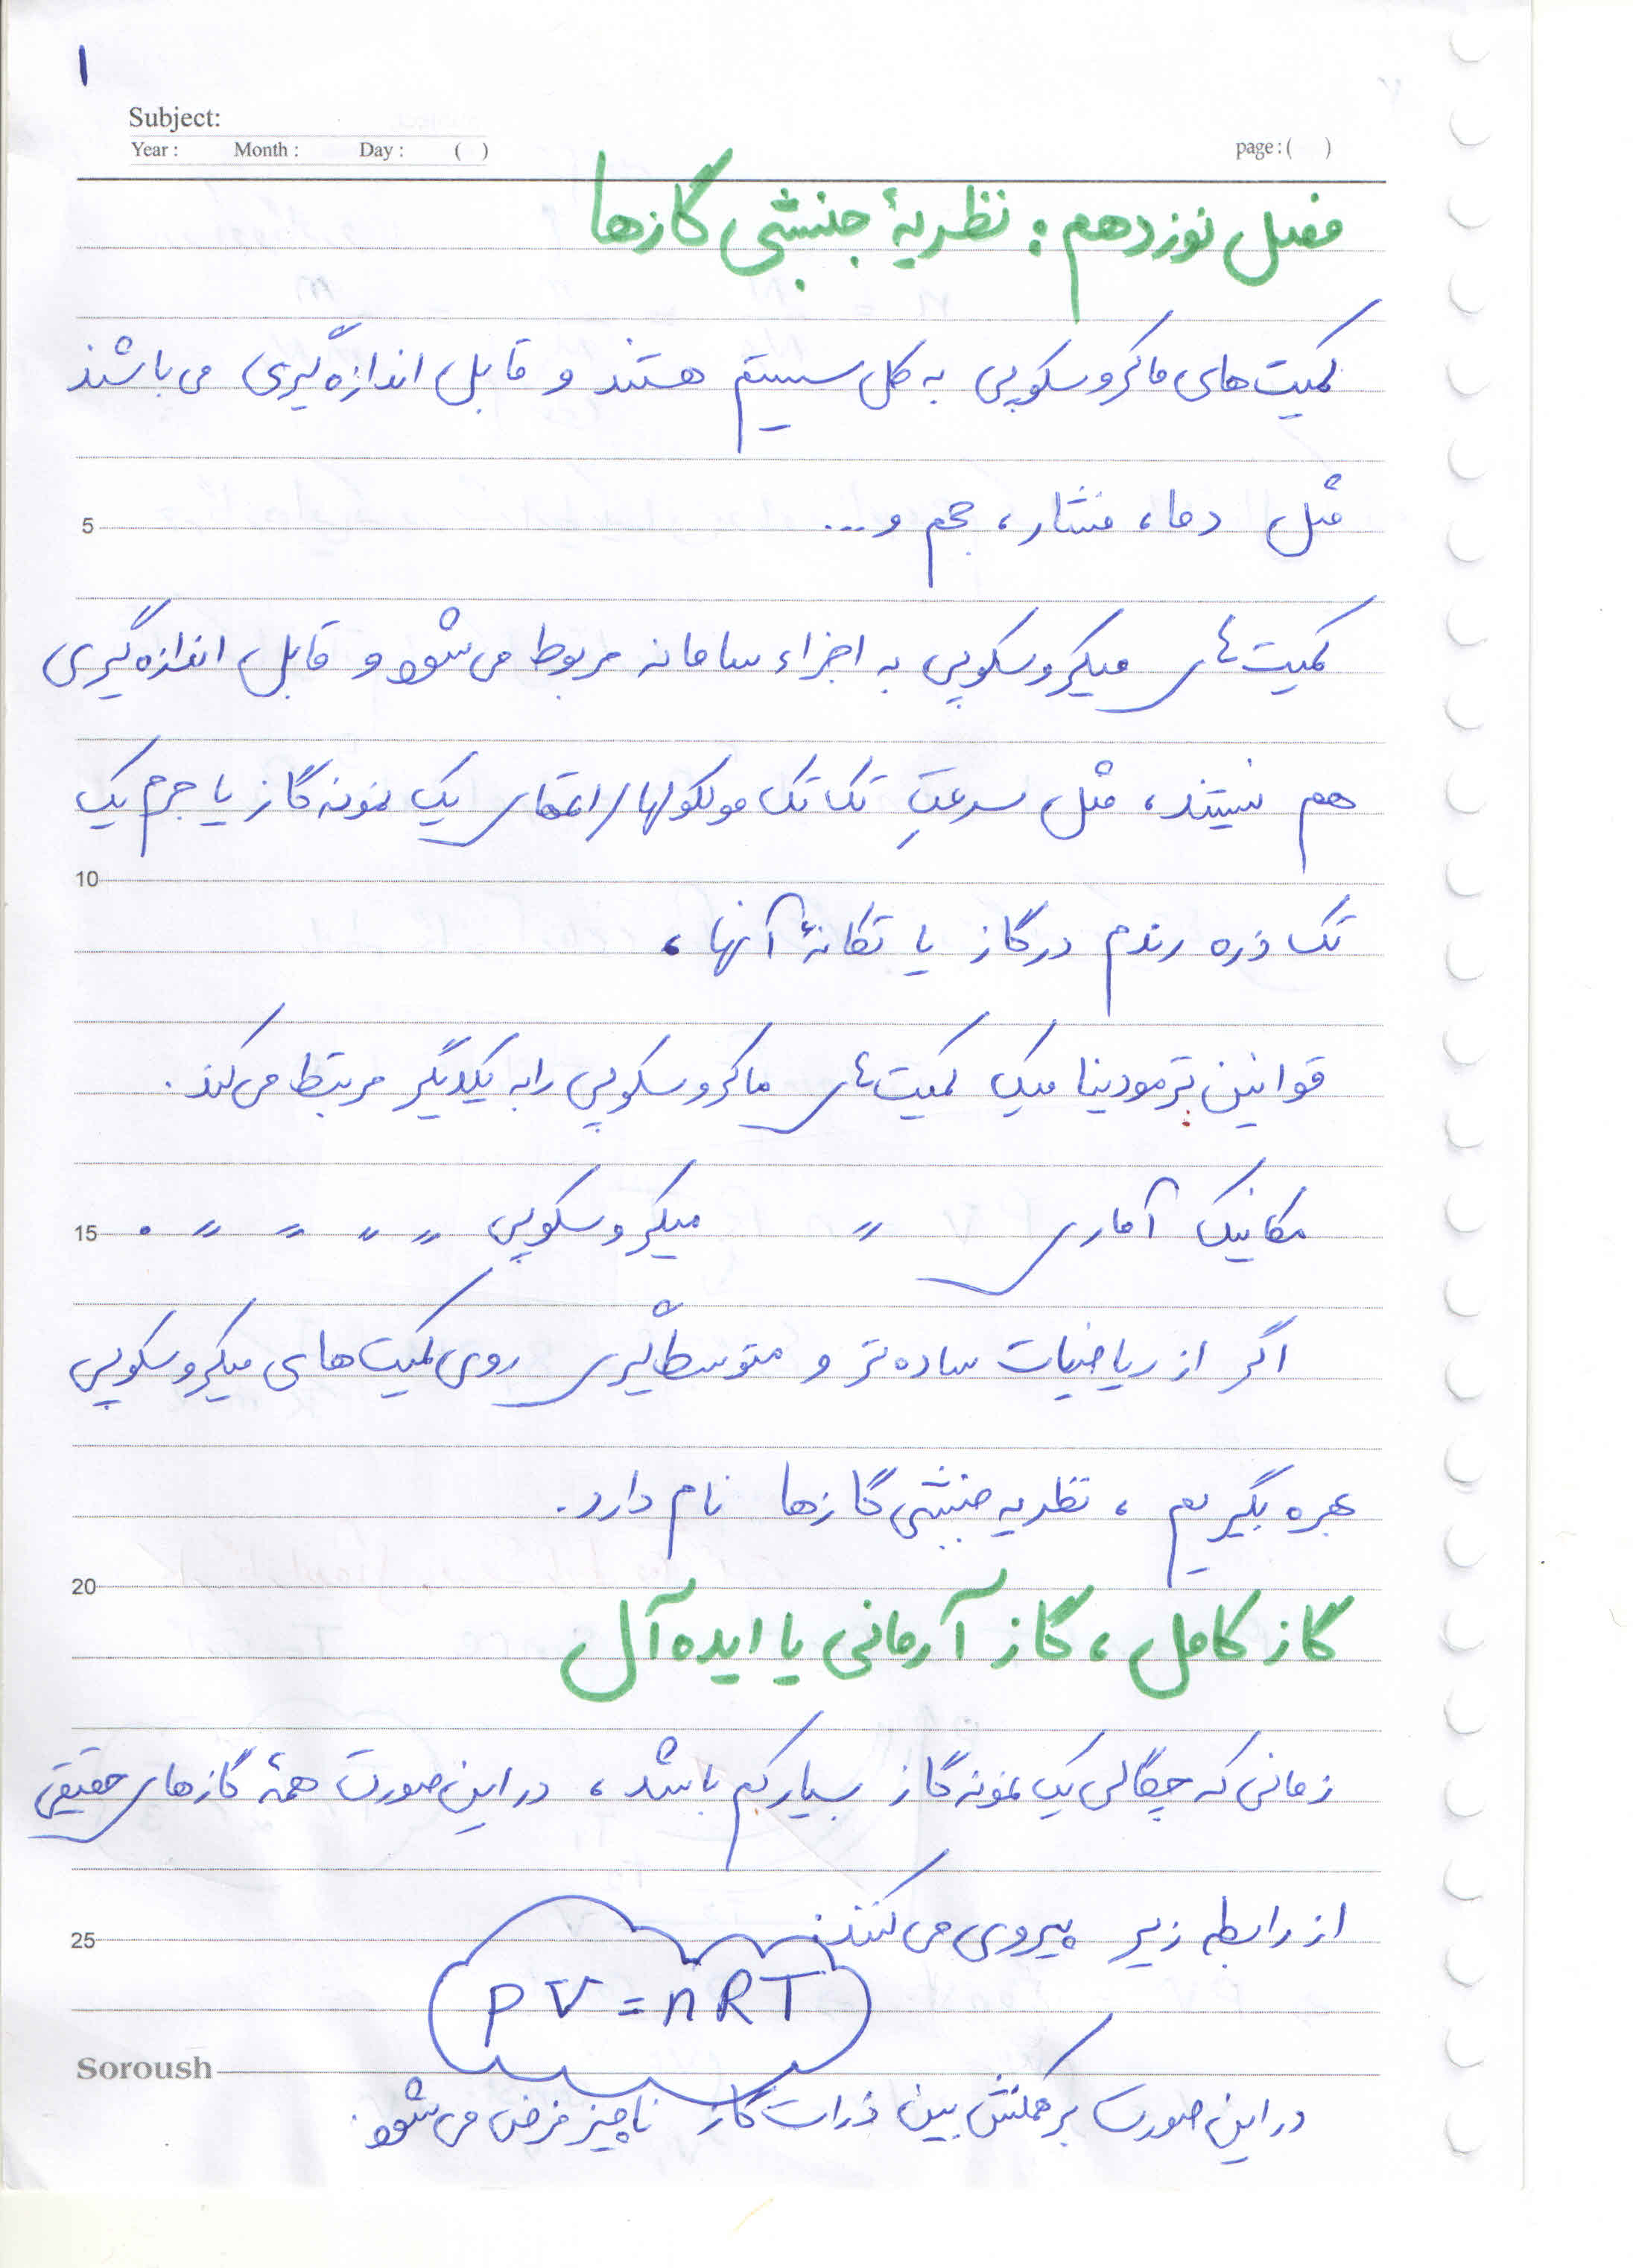 ۱
Subject:
Year : Month : Day : ( ) page : ( )
فصل نوزدهم : نظریهٔ جنبشی گازها
کمیت‌های ماکروسکوپی به کل سیستم هستند و قابل اندازه‌گیری می‌باشند
5 مثل دما، فشار، حجم و ...
کمیت‌های میکروسکوپی به اجزاء سامانه مربوط می‌شود و قابل اندازه‌گیری
هم نیستند، مثل سرعتِ تک تک مولکولها / اتمهای یک نمونه گاز یا جرم یک
10
تک ذره رندم در گاز یا تکانهٔ آنها،
قوانین ترمودینامیک کمیت‌های ماکروسکوپی را به یکدیگر مرتبط می‌کند.
15 مکانیک آماری " میکروسکوپی " " " " .
اگر از ریاضیات ساده‌تر و متوسط‌گیری روی کمیت‌های میکروسکوپی
بهره بگیریم، نظریه جنبشی گازها نام دارد.
20
گاز کامل، گاز آرمانی یا ایده‌آل
زمانی که چگالی یک نمونه گاز بسیار کم باشد، در این صورت همهٔ گازهای حقیقی
25 از رابطه زیر پیروی می‌کنند:
PV = nRT
Soroush
در این صورت برهمکنش بین ذرات گاز ناچیز فرض می‌شود.